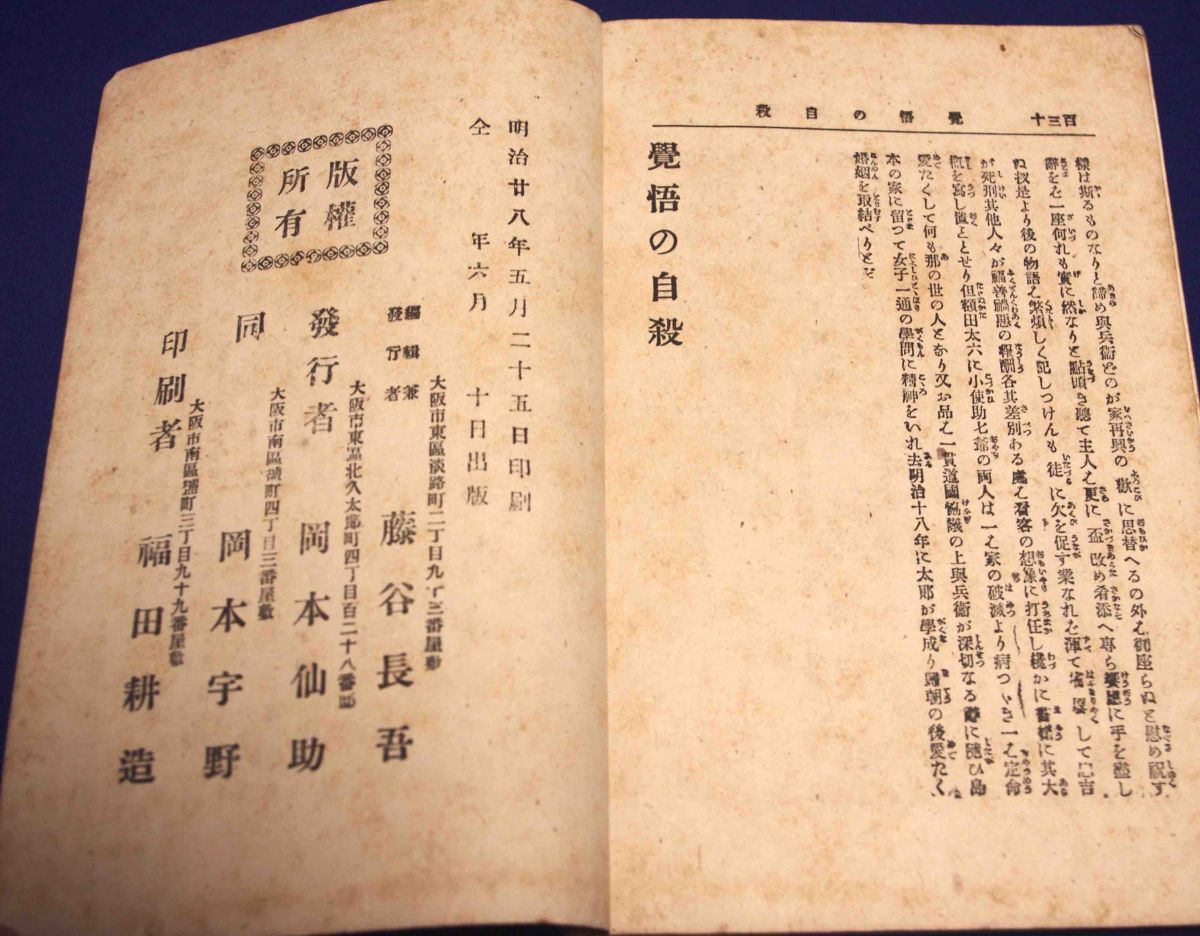 百三十
覺悟の自殺
樣は斯るものなりと諦め與兵衞どのが家再興の歡に思替へるの外も御座らぬと慰め祝す
辭をを一座何れも實に然なりと點頭き聽て主人も更に盃改め肴添へ專ら饗應に手を盡し
ぬ扨是より後の物語も繁煩しく記しつけんも徒に欠を促す業なれを渾て省畧して
が死刑其他人々が福善禍惡の報酬各其差別ある處も看客の想象に打任し纔かに其大
概を寫し置ととせり但額田太六に小使助七爺の両人は一も家の破滅より病つゝき一も定命
愛たくして何も那の世の人となり又お品も一貫道國恊議の上與兵衞が深切なる辭に隨ひ島
木の家に留つて女子一通の學問に精神をいれ去明治十八年に太郎が學成り歸朝の後愛たく
婚姻を取結べりとぞ
覺悟の自殺
明治廿八年五月二十五日印刷
仝 年六月 十日出版
大阪市東區淡路町二丁目九十三番屋敷
編輯兼發行者 藤谷長吾
大阪市東區北久太郎町四丁目百二十八番邸
發行者 岡本仙助
大阪市南區灘町四丁目三番屋敷
同 岡本宇野
大阪市南區鹽町三丁目九十九番屋敷
印刷者 福田耕造
版權
所有